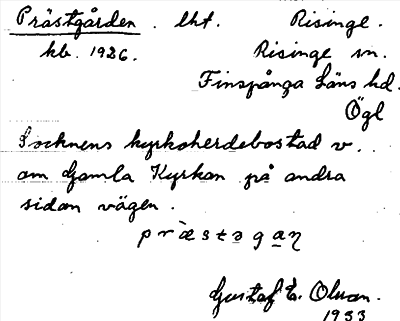 Prästgården. lht. Risinge.
kb. 1926. Risinge sn.
Finspånga Läns hd.
Ögl
Socknens kyrkoherdebostad v.
om Gamla Kyrkan på andra
sidan vägen.
præstəgaŋ
Gustaf E. Olson.
1933